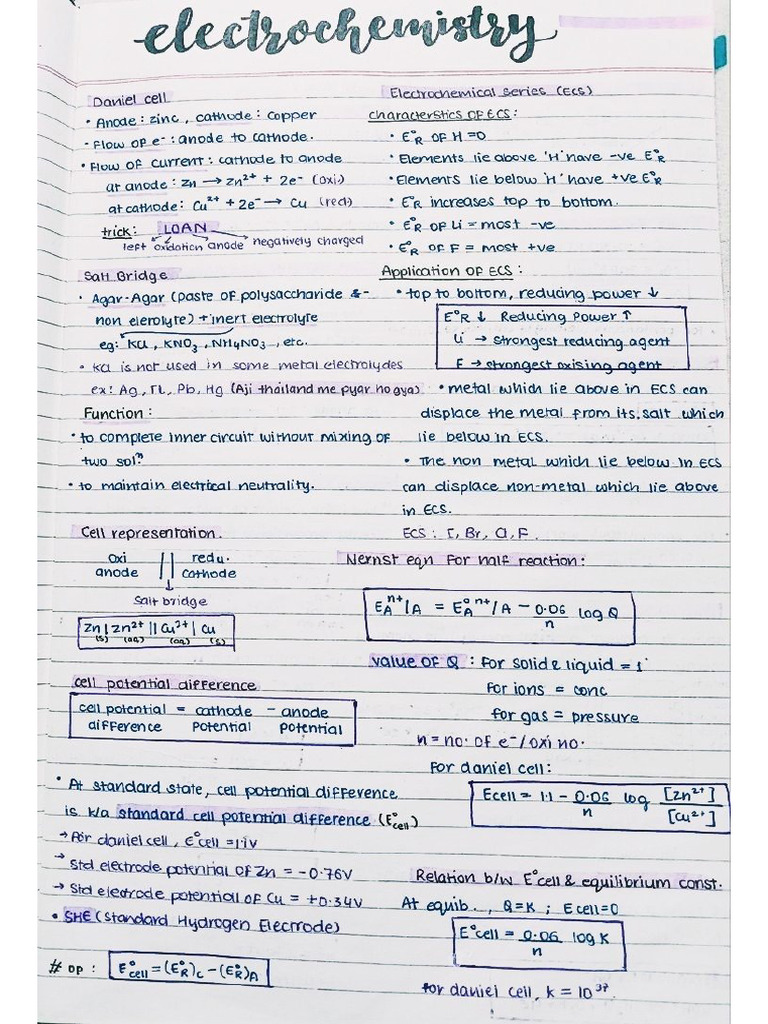 electrochemistry
Daniel cell
• Anode: zinc, cathode: copper
• Flow of e⁻: anode to cathode.
• Flow of current: cathode to anode
at anode: Zn → Zn²⁺ + 2e⁻ (oxi)
at cathode: Cu²⁺ + 2e⁻ → Cu (red)
trick: LOAN
left oxidation anode negatively charged
Salt Bridge
• Agar-Agar (paste of polysaccharide &-
non elerolyte) + inert electrolyte
eg: KCl, KNO₃, NH₄NO₃, etc.
• KCl is not used in some metal electrolydes
ex: Ag, Tl, Pb, Hg (Aji thailand me pyar ho gya)
Function:
• to complete inner circuit without mixing of
two solⁿ
• to maintain electrical neutrality.
Cell representation.
oxi || redu.
anode || cathode
↓
Salt bridge
Zn | Zn²⁺ || Cu²⁺ | Cu
(s) (aq) (aq) (s)
cell potential difference
cell potential = cathode - anode
difference potential potential
• At standard state, cell potential difference
is k/a standard cell potential difference (E°cell)
→ For daniel cell, E°cell = 1.1V
→ Std electrode potential of Zn = -0.76V
→ Std electrode potential of Cu = +0.34V
• SHE (Standard Hydrogen Electrode)
# OP: E°cell = (E°R)C - (E°R)A
Electrochemical series (ECS)
characterstics OF ECS:
• E°R OF H = 0
• Elements lie above 'H' have -ve E°R
• Elements lie below 'H' have +ve E°R
• E°R increases top to bottom.
• E°R OF Li = most -ve
• E°R OF F = most +ve
Application OF ECS:
• top to bottom, reducing power ↓
E°R ↓ Reducing Power ↑
Li → strongest reducing agent
F → strongest oxising agent
• metal which lie above in ECS can
displace the metal from its salt which
lie below in ECS.
• The non metal which lie below in ECS
can displace non-metal which lie above
in ECS.
ECS: I, Br, Cl, F.
Nernst eqn For half reaction:
E Aⁿ⁺/A = E° Aⁿ⁺/A - 0.06/n log Q
value of Q: For solid & liquid = 1
for ions = conc
for gas = pressure
n = no. of e⁻/oxi no.
For daniel cell:
Ecell = 1.1 - 0.06/n log [Zn²⁺]/[Cu²⁺]
Relation b/w E°cell & equilibrium const.
At equib., Q=K; Ecell=0
E°cell = 0.06/n log K
for daniel cell, k = 10³⁷